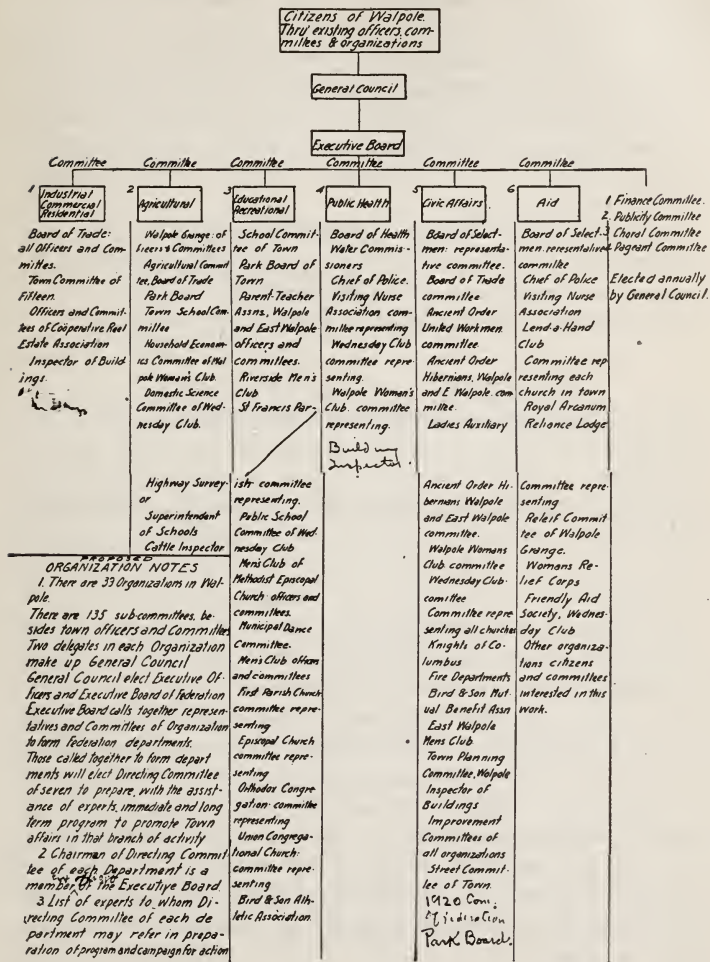 Citizens of Walpole.
Thru' existing officers, com-
mittees & organizations
General Council
Executive Board
Committee
Committee
Committee
Committee
Committee
Committee
1 Industrial
Commercial
Residential
Board of Trade:
all Officers and Com-
mittes.
Town Committee of
Fifteen.
Officers and Commit-
tees of Coöperative Real
Estate Association
Inspector of Build-
ings.
2 Agricultural
Walpole Grange: of
ficers & Committees
Agricultural Commit
tee, Board of Trade
Park Board
Town School Com-
mittee
Household Econom-
ics Committee of Wal
pole Woman's Club.
Domestic Science
Committee of Wed-
nesday Club.
Highway Survey-
or
Superintendent
of Schools
Cattle Inspector
3 Educational
Recreational
School Commit-
tee of Town
Park Board of
Town
Parent-Teacher
Assns, Walpole
and East Walpole
officers and
committees.
Riverside Men's
Club
St Francis Par-
ish committee
representing.
Public School
Committee of Wed-
nesday Club
Men's Club of
Methodist Episcopal
Church officers and
committees.
Municipal Dance
Committee.
Men's Club officers
and committees
First Parish Church
committee repre-
senting
Episcopal Church
committee repre-
senting
Orthodox Congre-
gation: committee
representing
Union Congrega-
tional Church:
committee repre-
senting
Bird & Son Ath-
letic Association.
4 Public Health
Board of Health
Water Commis-
sioners
Chief of Police.
Visiting Nurse
Association com-
mittee representing
Wednesday Club
committee repre-
senting.
Walpole Woman's
Club. committee
representing.
Building
Inspector.
5 Civic Affairs
Board of Select-
men: representa-
tive committee.
Board of Trade
committee
Ancient Order
United Workmen.
committee
Ancient Order
Hibernians, Walpole
and E Walpole. com
mittee.
Ladies Auxiliary
Ancient Order Hi-
bernians Walpole
and East Walpole
committee.
Walpole Womans
Club committee
Wednesday Club-
comittee
Committee repre
senting all churches
Knights of Co-
lumbus
Fire Departments
Bird & Son Mut-
ual Benefit Assn
East Walpole
Mens Club
Town Planning
Committee, Walpole
Inspector of
Buildings
Improvement
Committees of
all organizations
Street Commit-
tee of Town.
1920 Com.
Park Board.
6 Aid
Board of Select-
men. representative
committee
Chief of Police
Visiting Nurse
Association
Lend-a-Hand
Club
Committee rep
resenting each
church in town
Royal Arcanum
Reliance Lodge
Committee repre-
senting
Releif Commit
tee of Walpole
Grange.
Womans Re-
lief Corps
Friendly Aid
Society, Wednes-
day Club
Other organiza-
tions citizens
and committees
interested in this
work.
1 Finance Committee.
2. Publicity Committee
3 Choral Committee
4 Pageant Committee
Elected annually
by General Council.
PROPOSED
ORGANIZATION NOTES
1. There are 39 Organizations in Wal-
pole.
There are 135 sub-committees, be-
sides town officers and Committees
Two delegates in each Organization
make up General Council
General Council elect Executive Of-
ficers and Executive Board of Federation
Executive Board calls together represen-
tatives and Committees of Organization
to form Federation departments.
Those called together to form depart
ments will elect Directing Committee
of seven to prepare, with the assist-
ance of experts, immediate and long
term program to promote Town
affairs in that branch of activity
2 Chairman of Directing Commit
tee of each Department is a
member of the Executive Board.
3 List of experts to whom Di-
recting Committee of each de
partment may refer in prepa-
ration of program and campaign for action